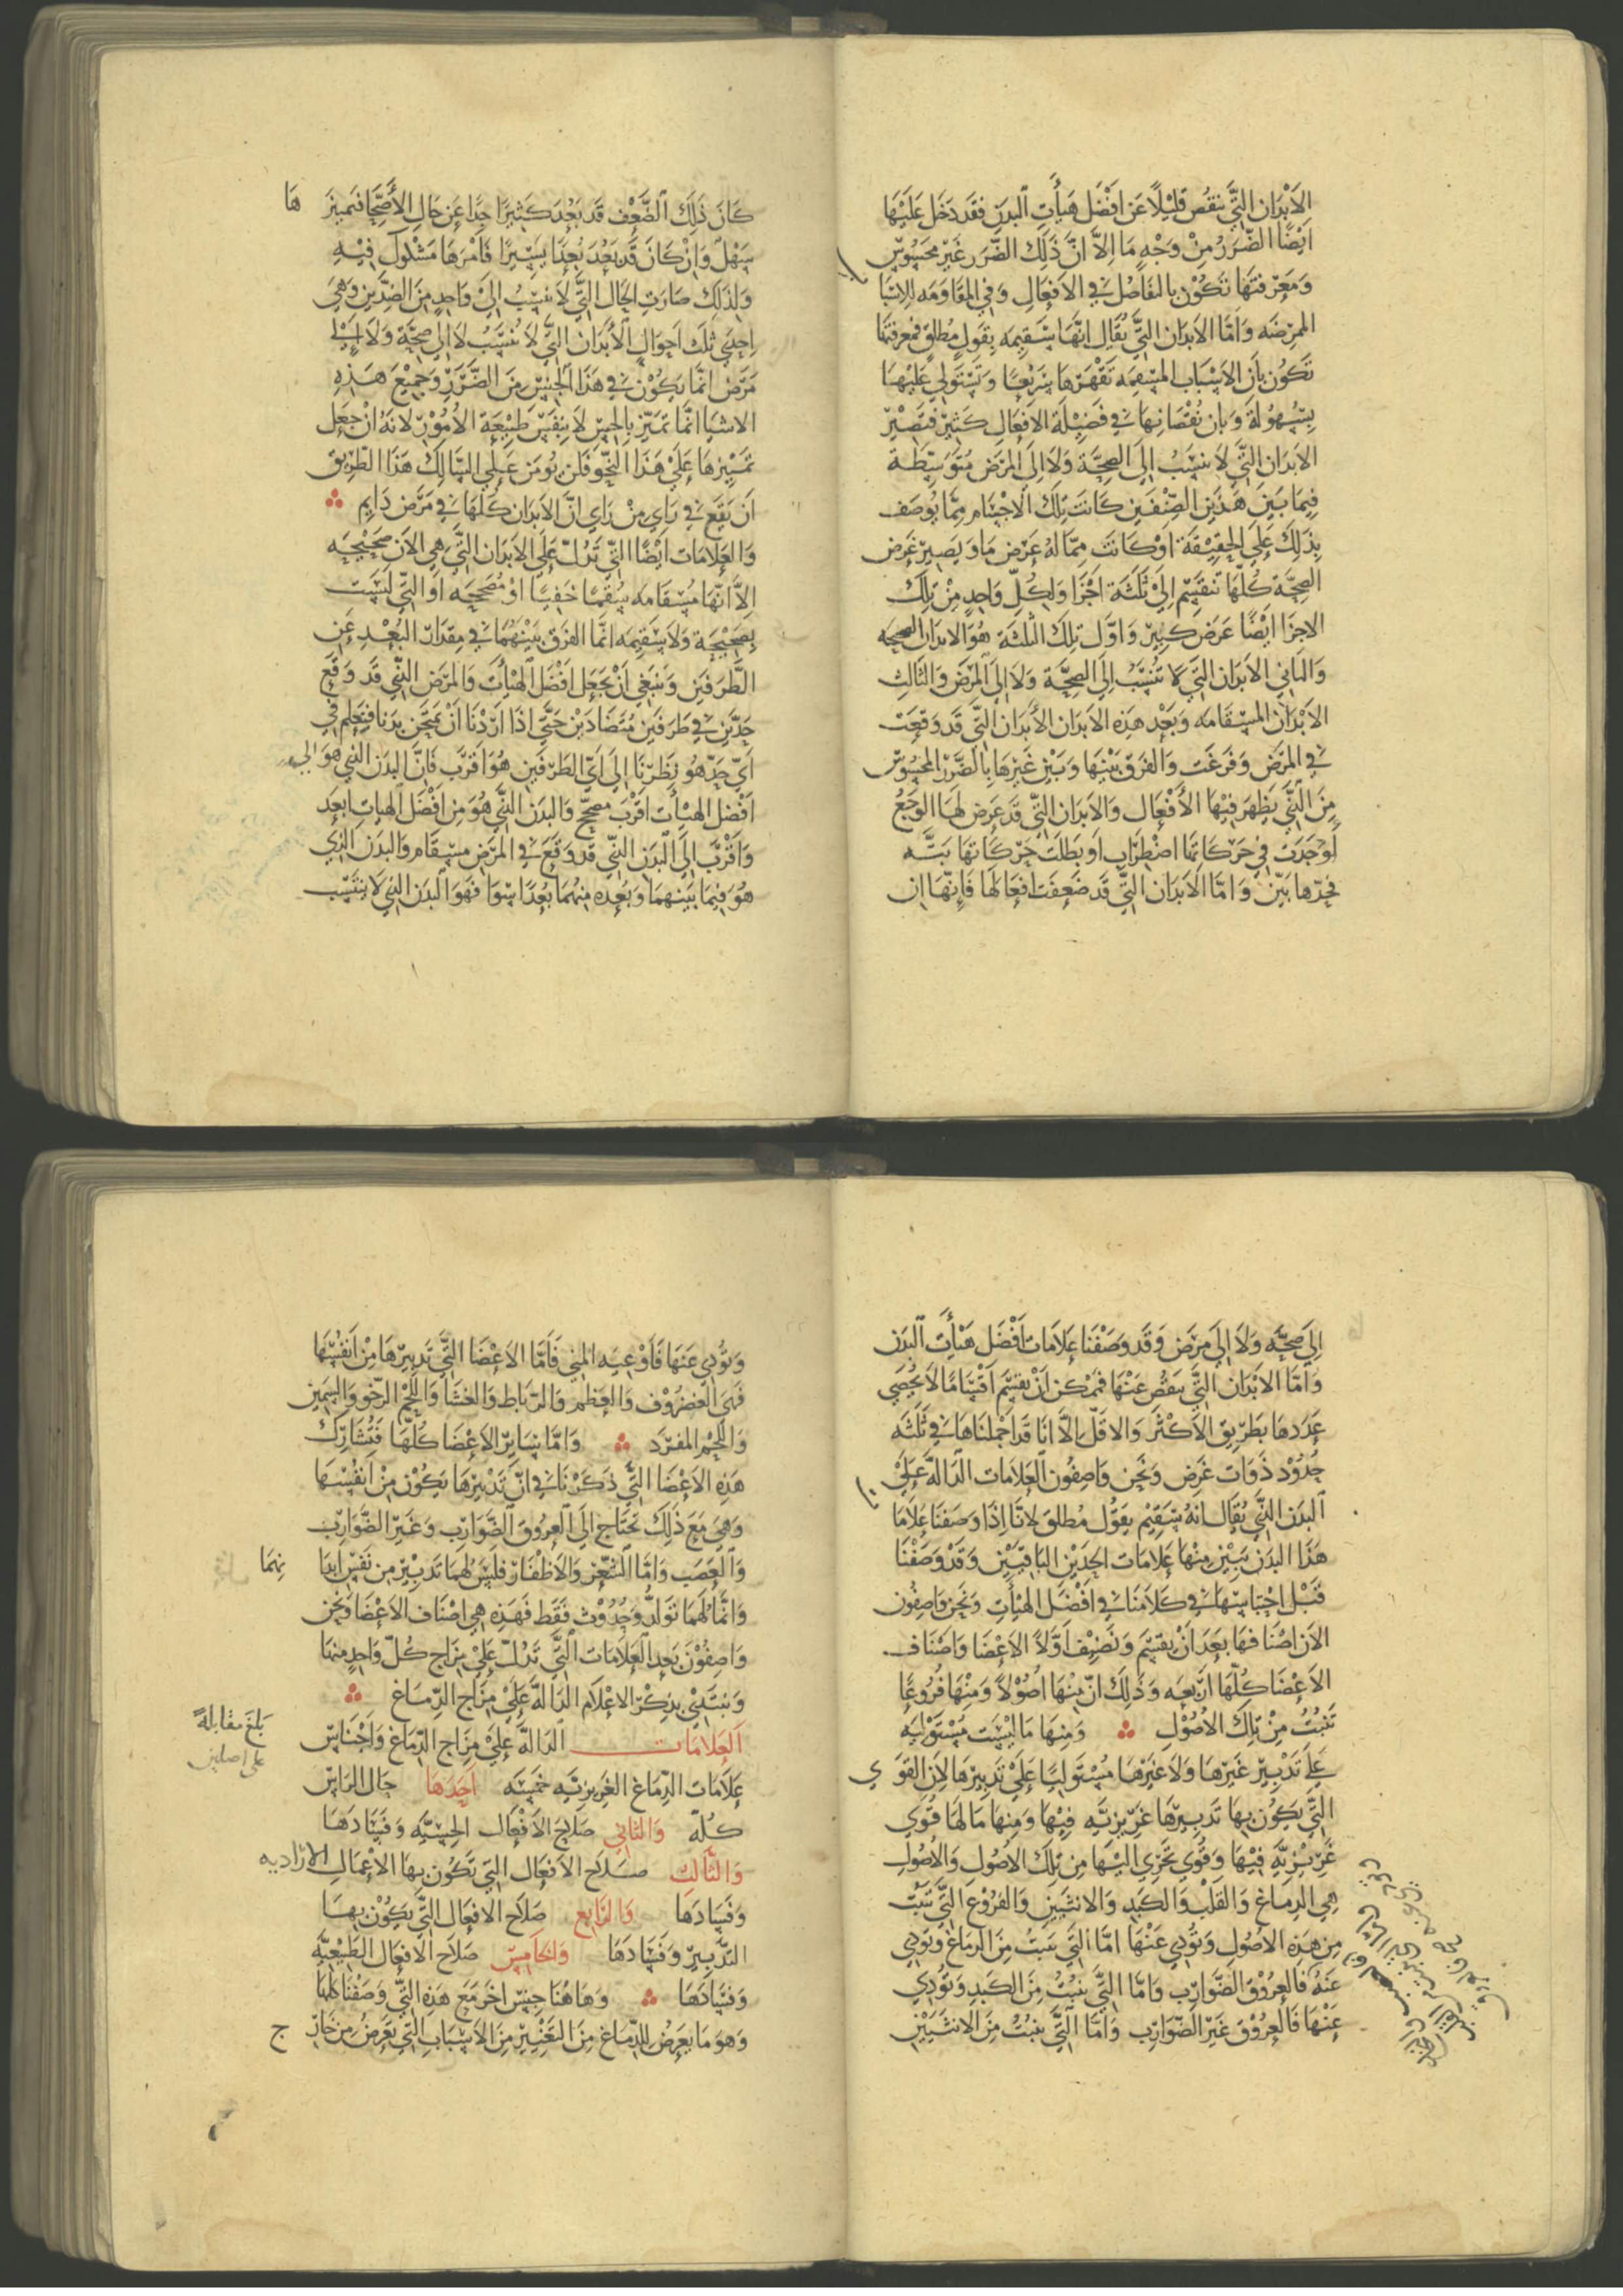 الابدان التي تنقص قليلاً عن افضل هيأت البدن فقد دخل عليها
ايضًا الضرر من وجه ما الا ان ذلك الضرر غير محسوس
ومعرفتها تكون بالتفاضل في الافعال وفي المقاومه للاسبا
الممرضه واما الابدان التي يقال انها سقيمه بقول مطلق فمعرفتها
تكون بان الاسباب المسقمه تقهرها سريعًا وتستولي عليها
بسهولة وبان نقصانها في فضيلة الافعال كثير فتصير
الابدان التي لا تنسب الى الصحة ولا الى المرض متوسطة
فيما بين هذين الصنفين كانت تلك الاجسام مما يوصف
بذلك على الحقيقة او كانت مما له عرض ما ويصير عرض
الصحة كلها تنقسم الى ثلثة اجزا ولكل واحد من تلك
الاجزا ايضًا عرض كبير واول تلك الثلثة هو الابدان الصحيحه
والثاني الابدان التي لا تنسب الى الصحة ولا الى المرض والثالث
الابدان المسقامه وبعد هذه الابدان الأبدان التي قد وقعت
في المرض وفرغت والفرق بينها وبين غيرها بالضرر المحسوس
من التي يظهر فيها الأفعال والابدان التي قد عرض لها الوجع
لوجدت في حركاتها اضطراب او بطلت حركاتها بتة
فحدها بين واما الابدان التي قد ضعفت افعالها فانها ان
كان ذلك الضعف قد بعد كثيرًا جدًا عن حال الأصحا فتميز ها
سهل وان كان قد بعد بعدًا يسيرًا فامرها مشكوك فيه
ولذلك صارت الحال التي لا تنسب الى واحد من الضدين وهي
احدى ثلث احوال الأبدان التي لا تنسب لا الى صحة ولا الى
مرض انما يكون في هذا الجنس من الضرر وجميع هذه
الاشيا انما تميز بالحس لا بنفس طبيعة الأمور لانه ان جعل
تمييزها على هذا النحو فلن يومن على السالك هذا الطريق
ان يقع في راي من راي ان الابدان كلها في مرض دايم
والعلامات ايضًا التي تدل على الابدان التي هي الان صحيحه
الا انها مسقامه سقمًا خفيًا او مصححه او التي ليست
بصحيحة ولا سقيمه انما الفرق بينهما في مقدار البعد عن
الطرفين وينبغي ان نجعل افضل الهيأت والمرض الذي قد وقع
حدين في طرفين متضادين حتى اذا اردنا ان نمتحن بدنا فنعلم في
اي حد هو نظرنا الى اي الطرفين هو اقرب فان البدن الذي هو الى
افضل الهيأت اقرب مصحح والبدن الذي هو من افضل الهيات ابعد
واقرب الى البدن الذي قد وقع في المرض مسقام والبدن الذي
هو فيما بينهما وبعده منهما بعدًا سوا فهو البدن الذي لا ينسب
الى صحة ولا الى مرض وقد وصفنا علامات افضل هيأت البدن
واما الابدان التي تنقص عنها فممكن ان تقسم اقسامًا لا يحصى
عددها بطريق الأكثر والاقل الا انا قد اجملناها في ثلثه
حدود ذوات عرض ونحن واصفون العلامات الدالة على
البدن الذي يقال انه سقيم بقول مطلق لانا اذا وصفنا علاما
هذا البدن تبين منها علامات الحدين الباقيين وقد وصفنا
قبل اجناسها في كلامنا في افضل الهيأت ونحن واصفون
الان اصنافها بعد ان نقسم ونصف اولاً الاعضا واصناف
الاعضا كلها اربعه وذلك ان منها اصولاً ومنها فروعًا
تنبت من تلك الأصول ومنها ما ليست مستوليه
على تدبير غيرها ولا غيرها مستوليا على تدبيرها لان القوي
التي يكون بها تدبيرها غريزية فيها ومنها ما لها قوى
غريزية فيها وقوي تجري اليها من تلك الأصول والأصول
هي الدماغ والقلب والكبد والانثيين والفروع التي تنبت
من هذه الاصول وتؤدي عنها اما التي تنبت من الدماغ وتودي
عنه فالعروق الضوارب واما التي تنبت من الكبد وتؤدي
عنها فالعروق غير الضوارب واما التي تنبت من الانثيين
وتؤدي عنها فاوعيه المني فاما الاعضا التي تدبيرها من انفسها
فهي الغضروف والعظم والرباط والغشا واللحم الرخو والسمين
واللحم المفرد واما ساير الاعضا كلها فتشارك
هذه الاعضا التي ذكرنا في ان تدبيرها يكون من انفسها
وهي مع ذلك تحتاج الى العروق الضوارب وغير الضوارب
والعصب واما الشعر والاظفار فليس لهما تدبير من نفس ابدا نهما
وانما لهما تولد وحدوث فقط فهذه هي اصناف الاعضا ونحن
واصفون بعد العلامات التي تدل على مزاج كل واحد منها
ونبتدي بذكر الاعلام الدالة على مزاج الدماغ
العلامات الدالة على مزاج الدماغ واجناس
بلغ مقابلة
على اصلين
علامات الدماغ الغريزية خمسه احدها حال الراس
كله والثاني صلاح الافعال الحسيه وفسادها
والثالث صلاح الافعال التي تكون بها الاعمال الاراديه
وفسادها والرابع صلاح الافعال التي يكون بها
التدبير وفسادها والخامس صلاح الافعال الطبيعية
وفسادها وهاهنا جنس اخر مع هذه التي وصفنا كلها
وهو ما يعرض للدماغ من التغيير من الاسباب التي تعرض من خارج